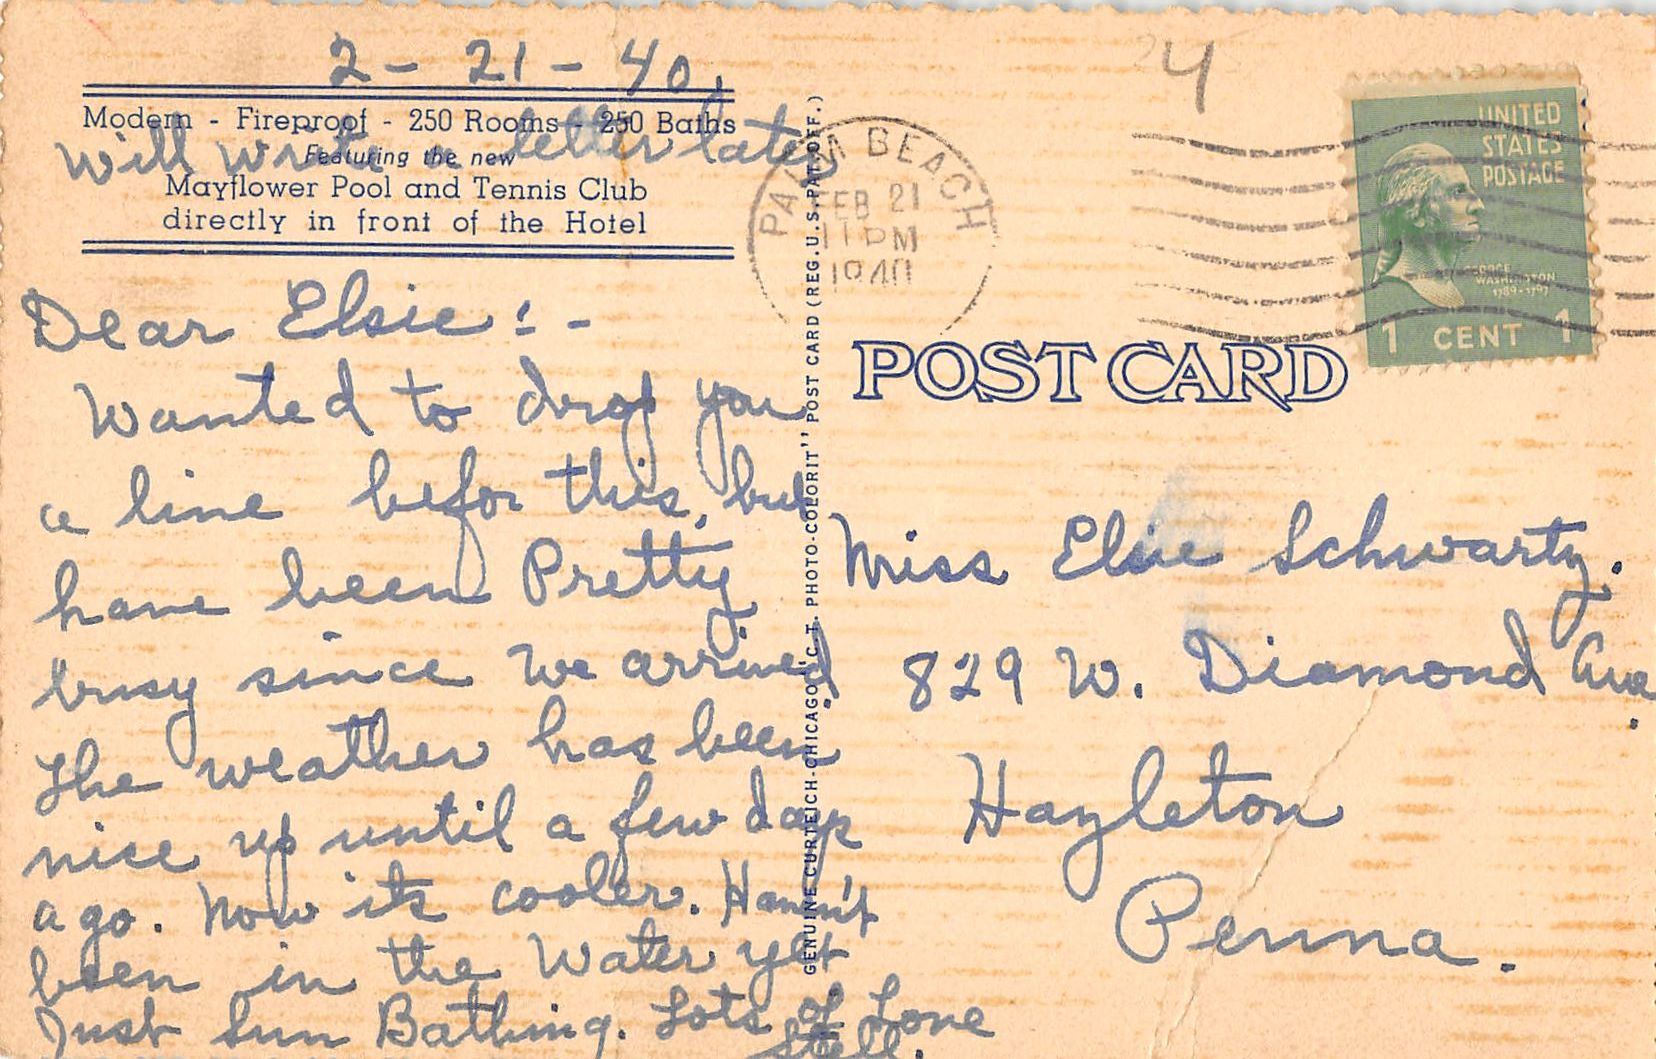 2 - 21 - 40.
Modern - Fireproof - 250 Rooms - 250 Baths
will write a letter later
Featuring the new
Mayflower Pool and Tennis Club
directly in front of the Hotel
Dear Elsie : -
Wanted to drop you
a line befor this, but
have been Pretty
busy since we arrived.
The weather has been
nice up until a few days
ago. Now its cooler. Haven't
been in the Water yet
Just Sun Bathing. Lots of Love
Stell.
GENUINE CURTEICH-CHICAGO "C.T. PHOTO-COLORIT" POST CARD (REG. U.S. PAT. OFF.)
PALM BEACH
FEB 21
11 PM
1940
24
UNITED
STATES
POSTAGE
GEORGE
WASHINGTON
1789-1797
1 CENT 1
POST CARD
Miss Elsie Schwartz.
829 W. Diamond Ave.
Hazleton
Penna.